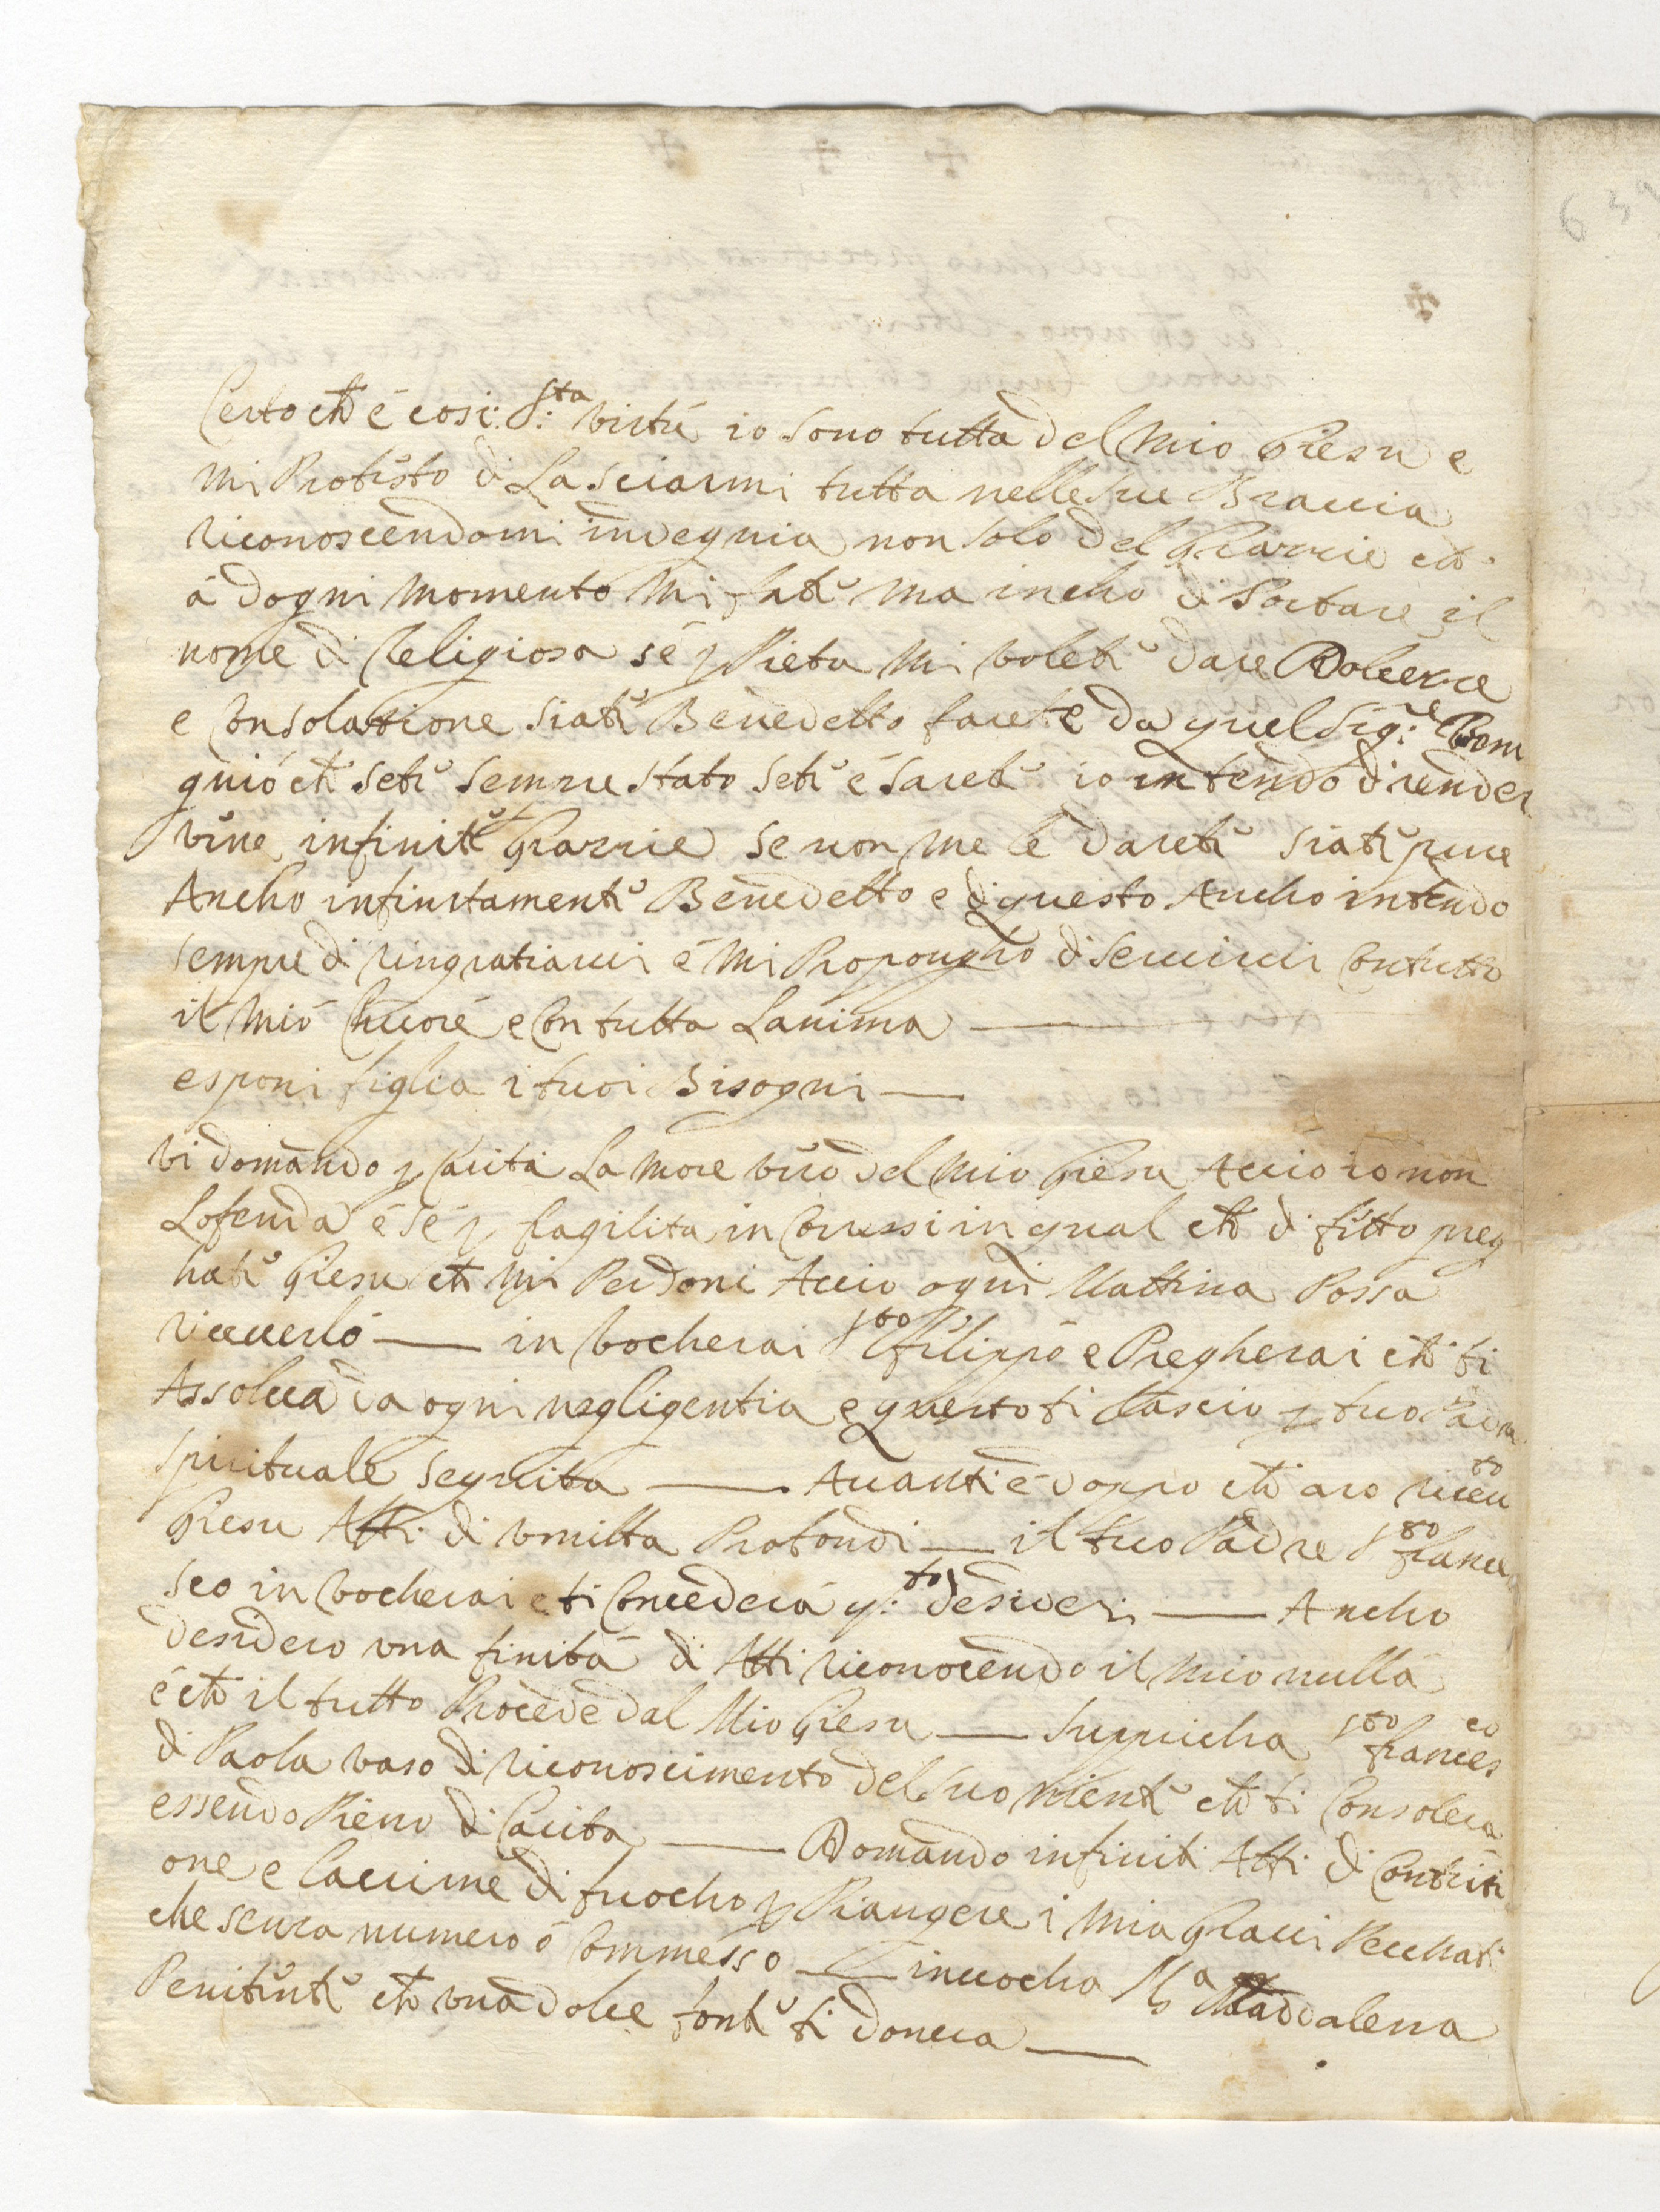 Certo ch̄ é cosi: S:ta virtú io sono tutta del mio Giesu e
mi Protesto di Lasciarmi tutta nelle sue Braccia
riconoscendomi indegnia non solo del Grazzie ch̄
á dogni momento mi fate ma incho di Portare il
nome di Religiosa sé p Pieta mi volete dare Dolcezze
e Consolattione siate Benedetto farete da quel Sig:re Beni
gnió ch̄ sete sempre stato sete é sarete io intendo di render
vine infinite Grazzie se non me le darete siate pure
Ancho infinitamente Benedetto e di questo Ancho intendo
sempre di ringratiarvi é mi Propongho di Servirvi Con tutto
il mió Chuoré e Con tutta Lanima —
esponi figlia i tuoi Bisogni —
vi domando p Carita La more vivo del mio Giesu Accio io non
Lofenda é sé p fragilita in Coressi in qual ch̄ difetto preg
hate Giesu ch̄ mi Perdoni Accio ogni Mattina Possa
riceverló — in vocherai Sto filippo e Pregherai ch̄ ti
Assolva da ogni negligentia e questo ti Lascio p tuo Padre
spirituale seguita — Avanti é doppo ch̄ aro riceuto
Giesu Atti di vmilta Profondi — il tuo Padre Sto france
sco in vocherai e ti Concederá q:to desideri — Ancho
desidero vna finitá di Atti riconocendo il mio nullá
é ch̄ il tutto Procede dal Mio Giesu — Supplicha Sto francesco
di Paola vaso di riconoscimento del suo niente ch̄ ti Consolera
essendo Pieno di Carita — Domando infiniti Atti di Contriti
one e Lacrime di fuocho p Piangere i mia Gravi Pecchati
che senza numero ó Commesso — invocha Sa Maddalena
Penitente ch̄ vna dolce fonte ti donera —